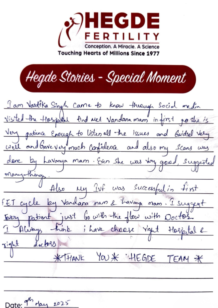 HEGDE
FERTILITY
Conception. A Miracle. A Science
Touching Hearts of Millions Since 1977
Hegde Stories - Special Moment
I am Vartika Singh came to know through Social media
Visited the Hospital that met Vandana mam in first go she is
very patience enough to listen all the issues and guided very
well and gave very much confidence and also my scans was
done by Lavanya mam. Even she was very good, suggested
many things.
Also My IVF was Successful in first
FET cycle by Vandana mam & Lavanya mam. I Suggest
Every patient just go with the flow with Doctor
I Always think i have choose right Hospital &
right doctors
*THANK YOU* HEGDE TEAM *
Date: 9th May 2025